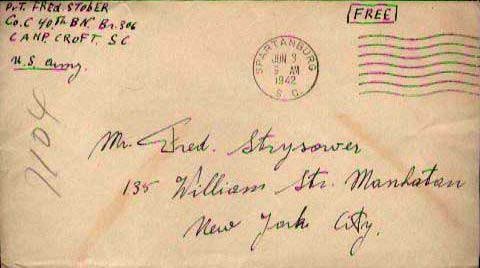 Pvt. FRED STOBER
Co. C 40th BN. Bn. 306
CAMP. CROFT. SC
U.S. Army.
FREE
SPARTANBURG
JUN 3
AM
1942
S. C.
1104
Mr. Fred. Strysower
135 William Str. Manhatan
New York City.